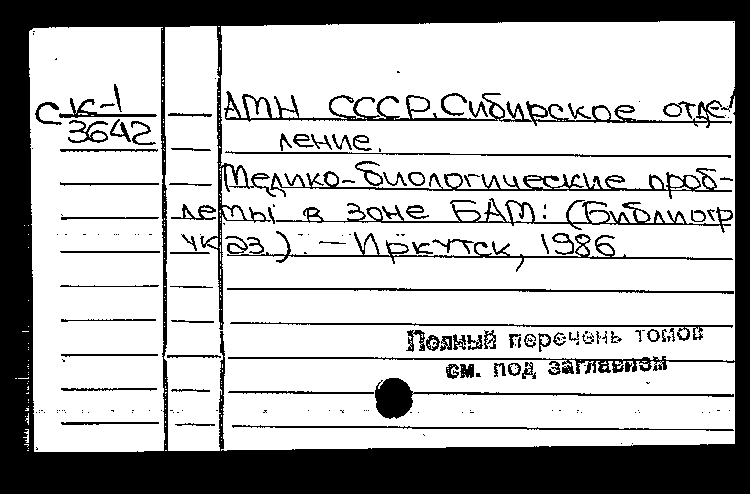 С к-1
3642
АМН СССР. Сибирское отде-
ление.
Медико-биологические проб-
лемы в зоне БАМ: (Библиогр
указ.). – Иркутск, 1986.
Полный перечень томов
см. под заглавием